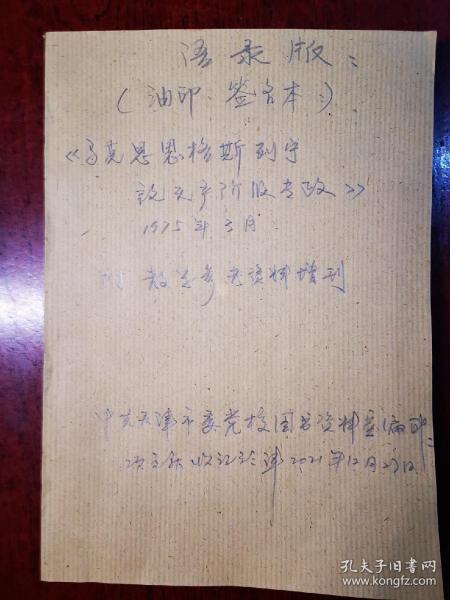 语录版:
(油印、签名本:)
《马克思恩格斯列宁
论无产阶级专政》
1975年3月
附 教学参考资料增刊
中共天津市委党校图书资料室编印:
收记于津2021年12月27日
孔夫子旧书网
www.kongfz.com